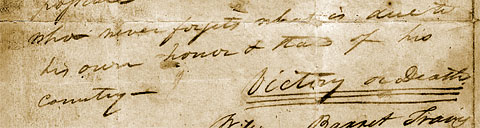 who never forgets what is due to
his own honor & that of his
country —
Victory or Death
Barret Travis